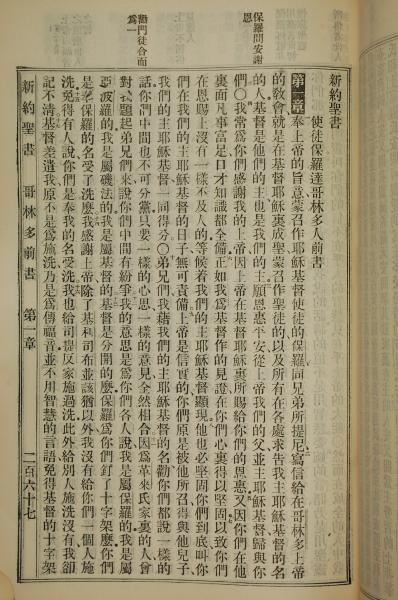 新約聖書
使徒保羅達哥林多人前書
第一章 奉上帝的旨意蒙召作耶穌基督使徒的保羅同兄弟所提尼寫信給在哥林多上帝
的敎會就是在基督耶穌裏成聖蒙召作聖徒的以及所有在各處求吿我主耶穌基督的名
的人基督是他們的主也是我們的主願恩惠平安從上帝我們的父並主耶穌基督歸與你
們〇我常爲你們感謝我的上帝因上帝在基督耶穌裏所賜給你們的恩惠又因你們在他
裏面凡事富足口才知識都全備正如我爲基督作的見證在你們心裏得以堅固以致你們
在恩賜上沒有一樣不及人的等候着我們的主耶穌基督顯現他也必堅固你們到底叫你
們在我們的主耶穌基督的日子無可責備上帝是信實的你們原是被他所召得與他兒子
我們的主耶穌基督一同得分〇弟兄們我藉我們的主耶穌基督的名勸你們都說一樣的
話你們中間也不可分黨只要一樣的心思一樣的意見全然相合因爲革來氏家裏的人曾
對我題起弟兄們來說你們中間有紛爭我的意思是爲你們各人說我是屬保羅的我是屬
亞波羅的我是屬磯法的我是屬基督的基督是分開的麽保羅爲你們釘了十字架麽你們
是奉保羅的名受了洗麽我感謝上帝除了基利司布並該猶以外我沒有給你們一個人施
洗免得有人說你們是奉我的名受洗我也給司提反家施過洗此外給別人施洗沒有我卻
記不淸基督差遣我原不是爲施洗乃是爲傳福音並不用智慧的言語免得基督的十字架
保羅問安謝
恩
勸門徒合而
爲一
新約聖書 哥林多前書 第一章 二百六十七